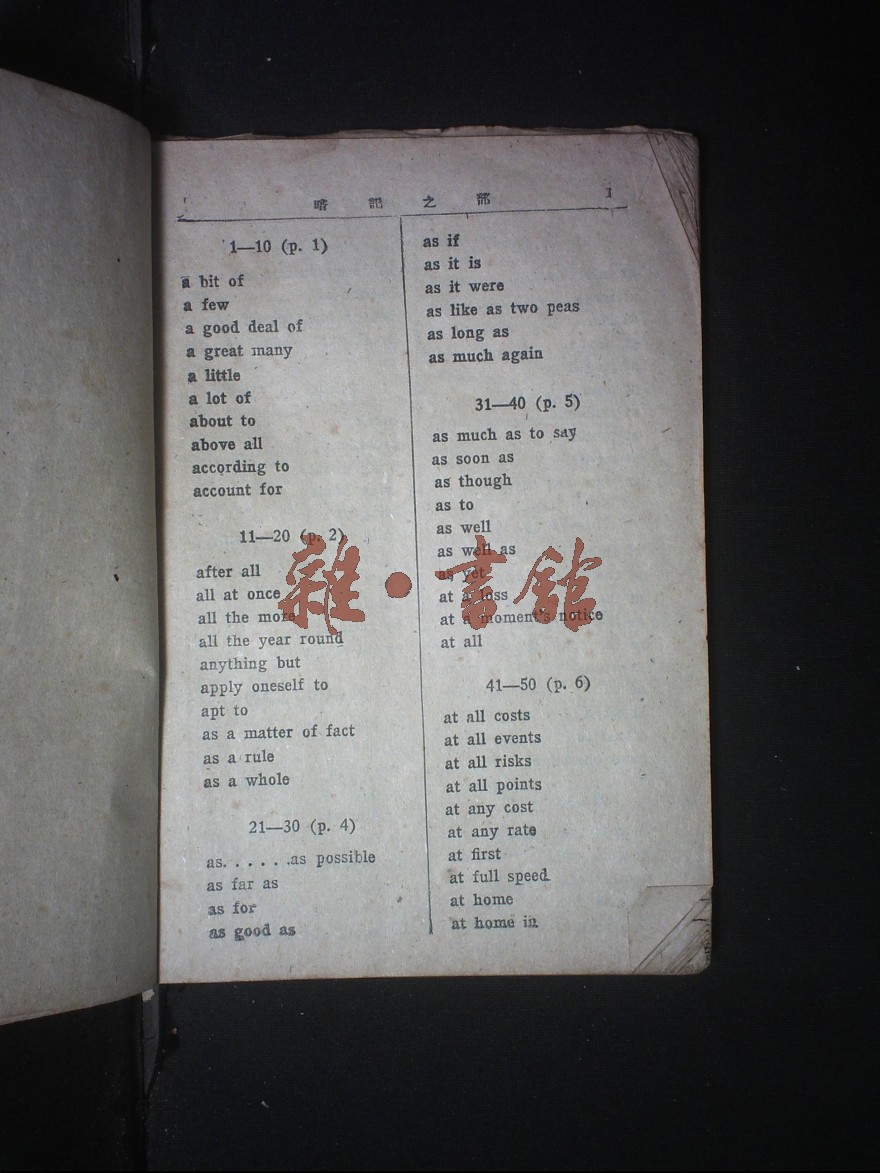 暗記之部 1
1—10 (p. 1)
a bit of
a few
a good deal of
a great many
a little
a lot of
about to
above all
according to
account for
11—20 (p. 2)
after all
all at once
all the more
all the year round
anything but
apply oneself to
apt to
as a matter of fact
as a rule
as a whole
21—30 (p. 4)
as. . . . . .as possible
as far as
as for
as good as
as if
as it is
as it were
as like as two peas
as long as
as much again
31—40 (p. 5)
as much as to say
as soon as
as though
as to
as well
as well as
as yet
at a loss
at a moment's notice
at all
41—50 (p. 6)
at all costs
at all events
at all risks
at all points
at any cost
at any rate
at first
at full speed
at home
at home in
雜·書館